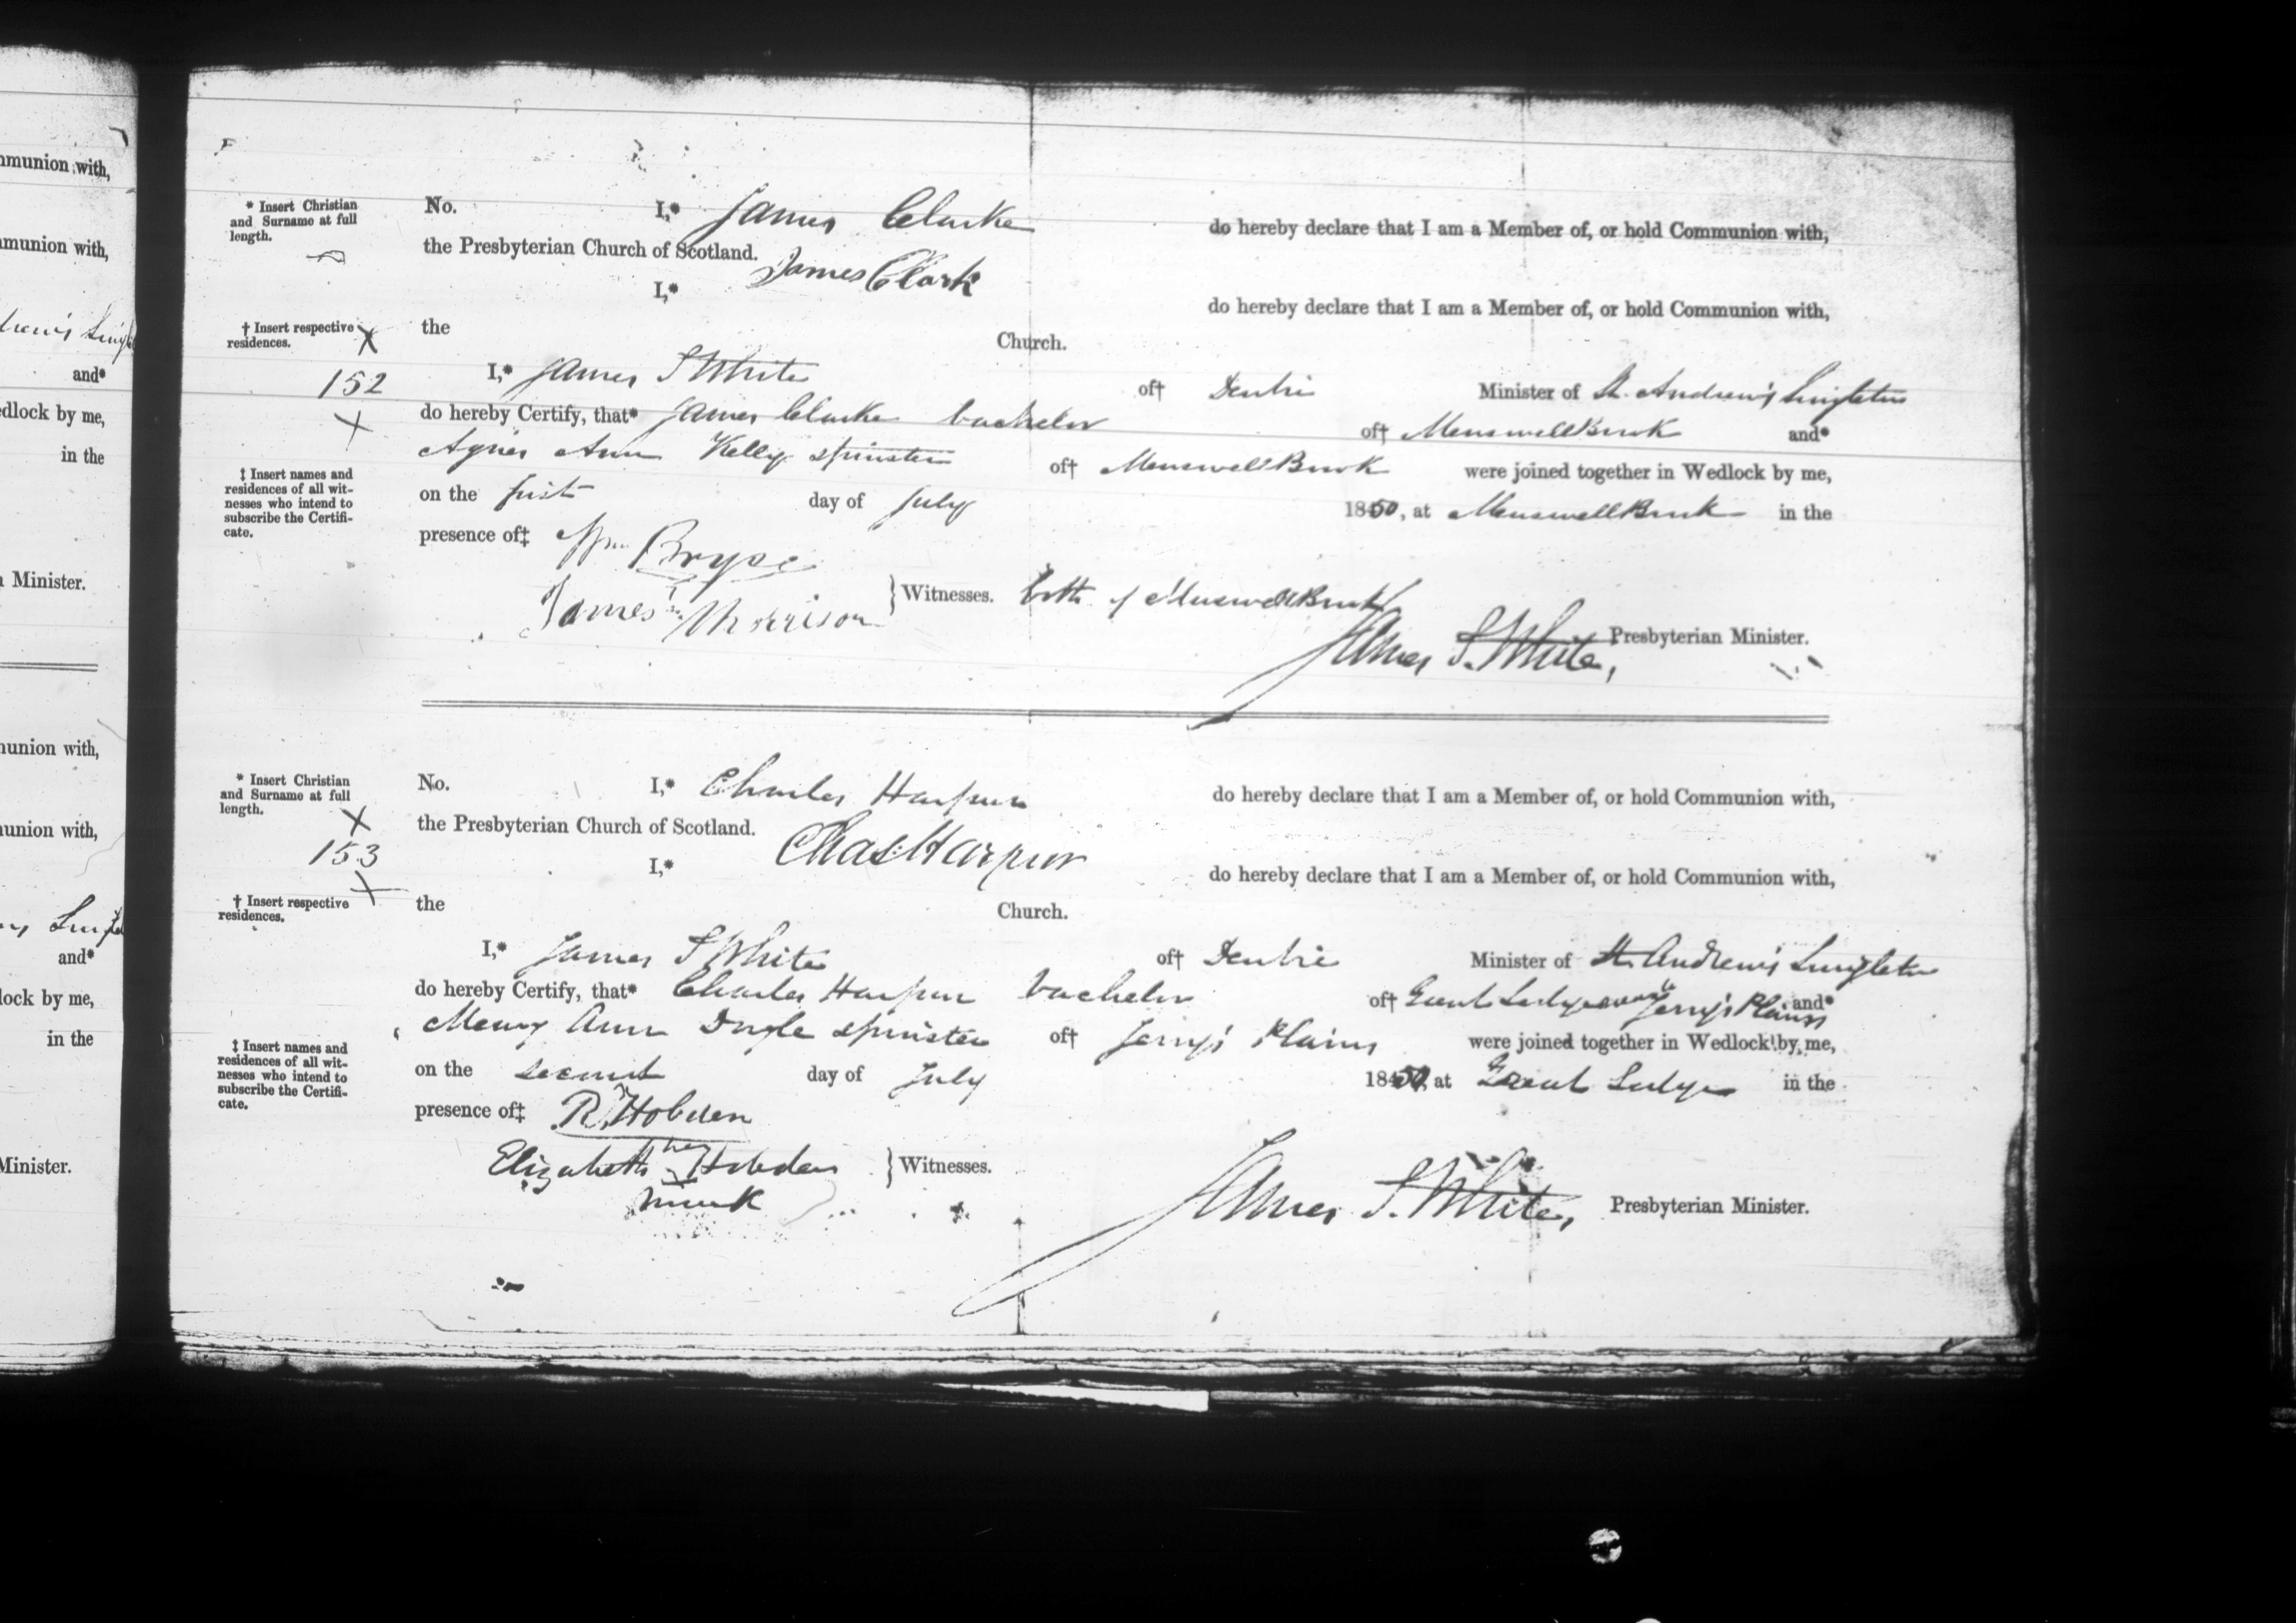 mmunion with,
mmunion with,
drew's Singl
and*
edlock by me,
in the
n Minister.
munion with,
munion with,
and*
lock by me,
in the
Minister.
* Insert Christian
and Surname at full
length.
No. I,* James Clarke do hereby declare that I am a Member of, or hold Communion with,
the Presbyterian Church of Scotland.
James Clark
I,* do hereby declare that I am a Member of, or hold Communion with,
† Insert respective
residences.
X
152
X
the Church.
I,* James S White of† Denbie Minister of St. Andrew's Singleton
do hereby Certify, that* James Clarke bachelor of† Muswellbrook and*
Agnes Ann Kelly spinster of† Muswellbrook were joined together in Wedlock by me,
‡ Insert names and
residences of all wit-
nesses who intend to
subscribe the Certifi-
cate.
on the first day of July 1850, at Muswellbrook in the
presence of‡ Wm Bryse
James Morrison } Witnesses. both of Muswellbrook
James S. White, Presbyterian Minister.
* Insert Christian
and Surname at full
length.
X
153
X
No. I,* Charles Harpur do hereby declare that I am a Member of, or hold Communion with,
the Presbyterian Church of Scotland.
Chas Harpur
I,* do hereby declare that I am a Member of, or hold Communion with,
† Insert respective
residences.
the Church.
I,* James S White of† Denbie Minister of St. Andrew's Singleton
do hereby Certify, that* Charles Harpur bachelor of† Jerry's Plains and*
Mary Ann Doyle spinster of† Jerry's Plains were joined together in Wedlock by me,
‡ Insert names and
residences of all wit-
nesses who intend to
subscribe the Certifi-
cate.
on the second day of July 1850, at Lodge in the
presence of‡ R. Hobden
Elizabeth her Hobden } Witnesses.
mark
James S. White, Presbyterian Minister.